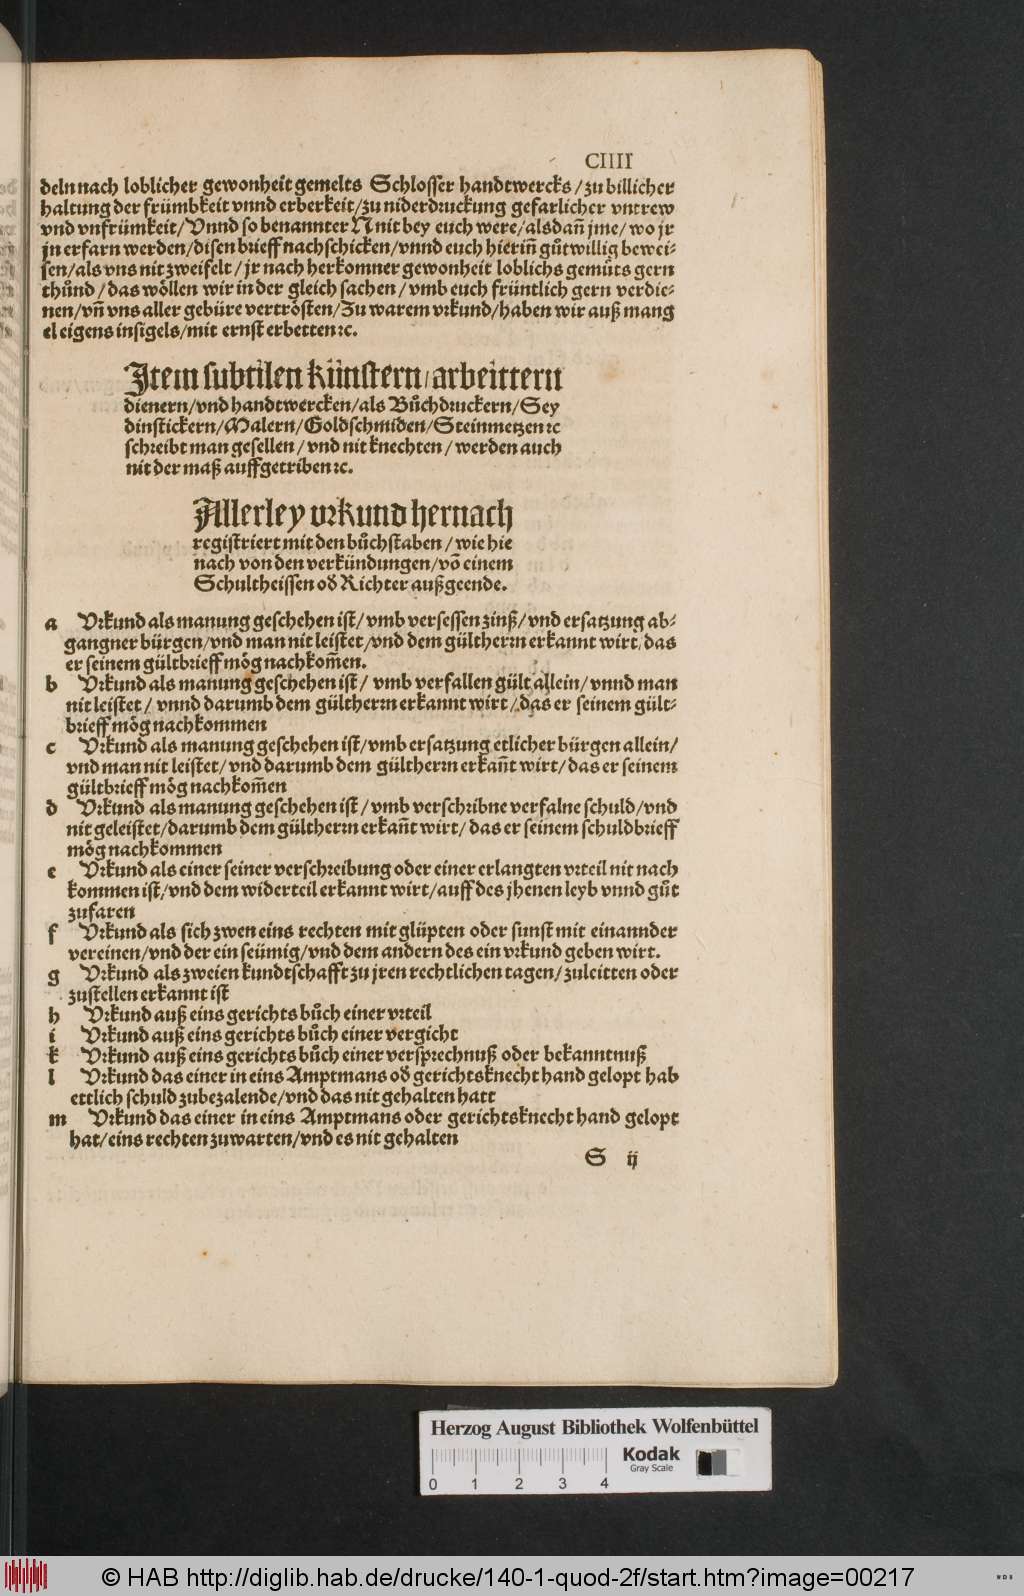 CIIII
deln nach loblicher gewonheit gemelts Schlosser handtwercks / zu billicher
haltung der frümbkeit vnnd erberkeit / zu niderdruckung gefarlicher vntrew
vnd vnfrümkeit / Vnnd so benannter N nit bey euch were / alsdañ jme / wo jr
jn erfarn werden / disen brieff nachschicken / vnnd euch hieriñ gůtwillig bewei-
sen / als vns nit zweifelt / jr nach herkomner gewonheit loblichs gemüts gern
thůnd / das wöllen wir in der gleich sachen / vmb euch früntlich gern verdie-
nen / vñ vns aller gebüre vertrösten / Zu warem vrkund / haben wir auß mang
el eigens insigels / mit ernst erbetten ꝛc.
Item subtilen künstern / arbeittern
dienern / vnd handtwercken / als Bůchdruckern / Sey
dinstickern / Malern / Goldschmiden / Steinmetzen ꝛc
schreibt man gesellen / vnd nit knechten / werden auch
nit der maß auffgetriben ꝛc.
Allerley vrkund hernach
registriert mit den bůchstaben / wie hie
nach von den verkündungen / võ einem
Schultheissen oď Richter außgeende.
a Vrkund als manung geschehen ist / vmb versessen zinß / vnd ersatzung ab-
gangner bürgen / vnd man nit leistet / vnd dem gültherrn erkannt wirt / das
er seinem gültbrieff mög nachkom̃en.
b Vrkund als manung geschehen ist / vmb verfallen gült allein / vnnd man
nit leistet / vnnd darumb dem gültherrn erkannt wirt / das er seinem gült-
brieff mög nachkommen
c Vrkund als manung geschehen ist / vmb ersatzung etlicher bürgen allein /
vnd man nit leistet / vnd darumb dem gültherrn erkañt wirt / das er seinem
gültbrieff mög nachkom̃en
d Vrkund als manung geschehen ist / vmb verschribne verfalne schuld / vnd
nit geleistet / darumb dem gültherrn erkañt wirt / das er seinem schuldbrieff
mög nachkommen
e Vrkund als einer seiner verschreibung oder einer erlangten vrteil nit nach
kommen ist / vnd dem widerteil erkannt wirt / auff des jhenen leyb vnnd gůt
zufaren
f Vrkund als sich zwen eins rechten mit glüpten oder sunst mit einannder
vereinen / vnd der ein seümig / vnd dem andern des ein vrkund geben wirt.
g Vrkund als zweien kundtschafft zu jren rechtlichen tagen / zuleitten oder
zustellen erkannt ist
h Vrkund auß eins gerichts bůch einer vrteil
i Vrkund auß eins gerichts bůch einer vergicht
k Vrkund auß eins gerichts bůch einer versprechnuß oder bekanntnuß
l Vrkund das einer in eins Amptmans oď gerichtsknecht hand gelopt hab
ettlich schuld zubezalende / vnd das nit gehalten hatt
m Vrkund das einer in eins Amptmans oder gerichtsknecht hand gelopt
hat / eins rechten zuwarten / vnd es nit gehalten
S ij
Herzog August Bibliothek Wolfenbüttel
Kodak
Gray Scale
0 1 2 3 4
© HAB http://diglib.hab.de/drucke/140-1-quod-2f/start.htm?image=00217